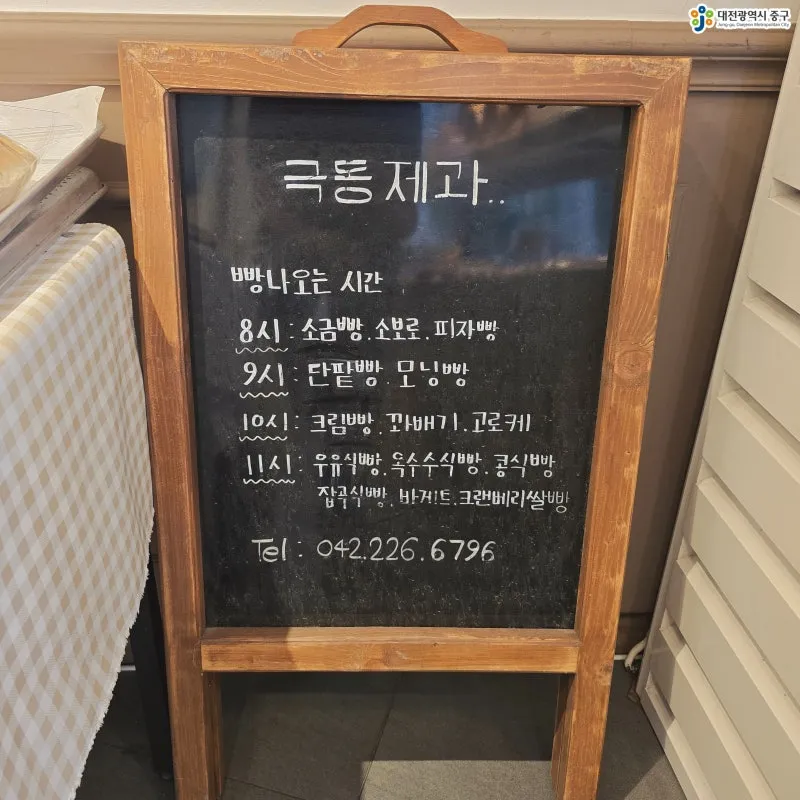 대전광역시 중구
Jung-gu, Daejeon Metropolitan City
극동제과..
빵나오는 시간
8시 : 소금빵. 소보로. 피자빵
9시 : 단팥빵. 모닝빵
10시 : 크림빵. 꽈배기. 고로케
11시 : 우유식빵. 옥수수식빵. 콩식빵
잡곡식빵. 바게트. 크랜베리쌀빵
Tel : 042.226.6796